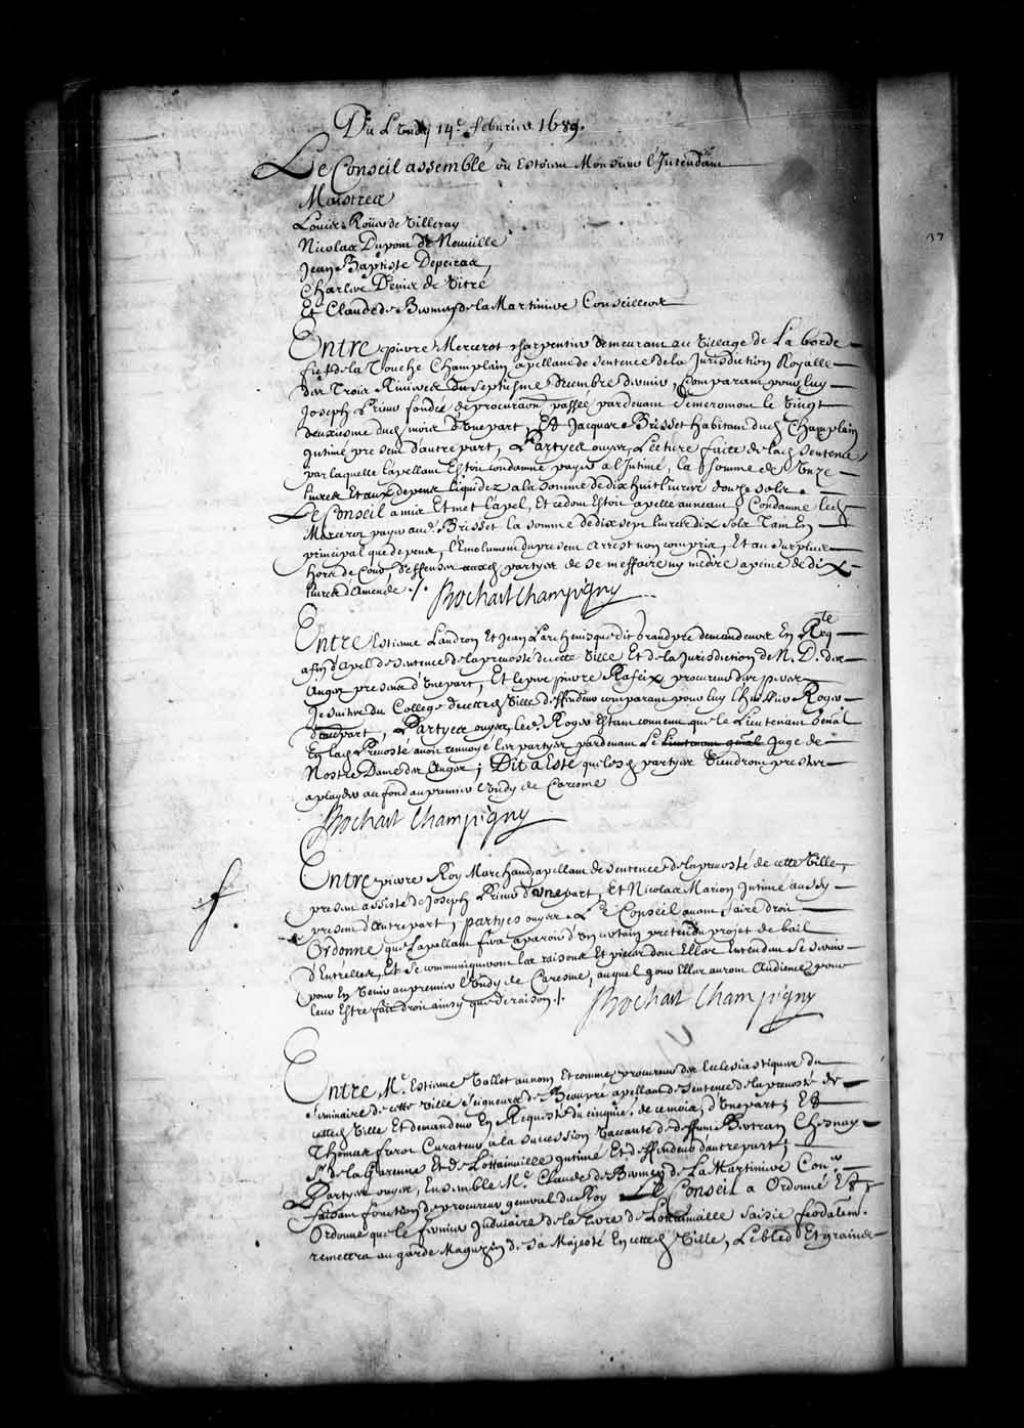 Du Lundy 14e. febvrier 1689.
Le Conseil assemblé ou Estoient Monsieur l'Intendant
Maistres
Louis Roüer de Villeray
Nicolas Dupont de Neuuille
Jean Baptiste Depeiras,
Charles Denis de Vitré
Et Claude de Bermen de la Martiniere Conseillers
Entre pierre Mercerot charpentier demeurant au Village de La borde
fief de la Touche Champlain apellant de sentence de la Jurisdiction Royalle
des Trois Riuieres du septiesme decembre dernier, Comparant pour luy
Joseph Prieur fondé de procuraon passée pardeuant Demeromont le Vingt
deuxiesme dud. mois d'Vne part, Et Jacques Brisset habitant dud. Champlain
Intimé present d'autre part, Partyes ouyes, Lecture faite de lad. sentence
par laquelle lapellant Estoit condamné payer a l'Intimé, la somme de Vnze
liures Et aux depens liquidez a la somme de dix huit liures douze sols.
Le Conseil a mis Et met l'apel, Et ce dont Estoit apellé au neant, Condamne led.
Mercerot payer aud. Brisset la somme de dix sept liures dix sols Tant En
principal que depens, l'Emolument du present Arrest non compris, Et au surplus
hors de Cour, deffenses aux partyes de se meffaire ny medire a peine de dix
liures d'Amende ./. Bochart Champigny
Entre Estienne Landron Et Jean Larchevesque dit Grandpré demandeurs En Reqte
afin d'apel de sentence de la preuosté de cette Ville Et de la Jurisdiction de N. D. des
Anges presens d'Vne part, Et le pere pierre Rafeix procureur des peres
Jesuites du College de cetted. Ville deffendeur comparant pour luy Roger
d'autpart, Partyes ouyes, led. Roger Estant conuenu que le Lieutenant Genal
En lad. Preuosté auoit renuoyé les partyes pardeuant Le Lieutenant gnal Juge de
Nostre Dame des Anges; Dit a Esté que lesd. partyes Viendront prestes
a playder au fond au premier Lundy de Caresme
Bochart Champigny
Entre pierre Roy Marchand apellant de sentence de la preuosté de cette Ville,
present assisté de Joseph Prieur d'vne part, Et Nicolas Marion Intimé aussy
present d'autre part, partyes ouyes Le Conseil auant faire droit
Ordonne que Lapellant fera aparoir d'Vn certain pretendu projet de bail
d'Entr'elles, Et se communiqueront les raisons Et pieces dont Elles Entendent se seruir
pour En Venir au premier Lundy de Caresme, auquel jour Elles auront Audience pour
leur Estre fait droit ainsy que de raison ./. Bochart Champigny
Entre Me. Estienne Vallet au nom Et comme procureur des Ecclesiastiques du
seminaire de cette ville seigneurs de Beaupré apellant de sentence de la preuosté de
cetted. Ville Et demandeur En Requeste du cinquie. de ce mois, d'Vne part; Et
Thomas frerot Curateur a la succession Vaccante de deffunt Bertran Chesnay
Sr. de la Garenne Et de Lottainuille Intimé Et deffendeur d'autre part;
Partyes ouyes, Ensemble Me. Claude de Bermen de La Martiniere Coner
faisant fonction de procureur general du Roy Le Conseil a Ordonné Et
Ordonne que le fermier Judiciaire de la terre de Lottainuille saisie feodalemt.
remettra au garde Magazin de sa Majesté En cetted. Ville, Le bled Et grains